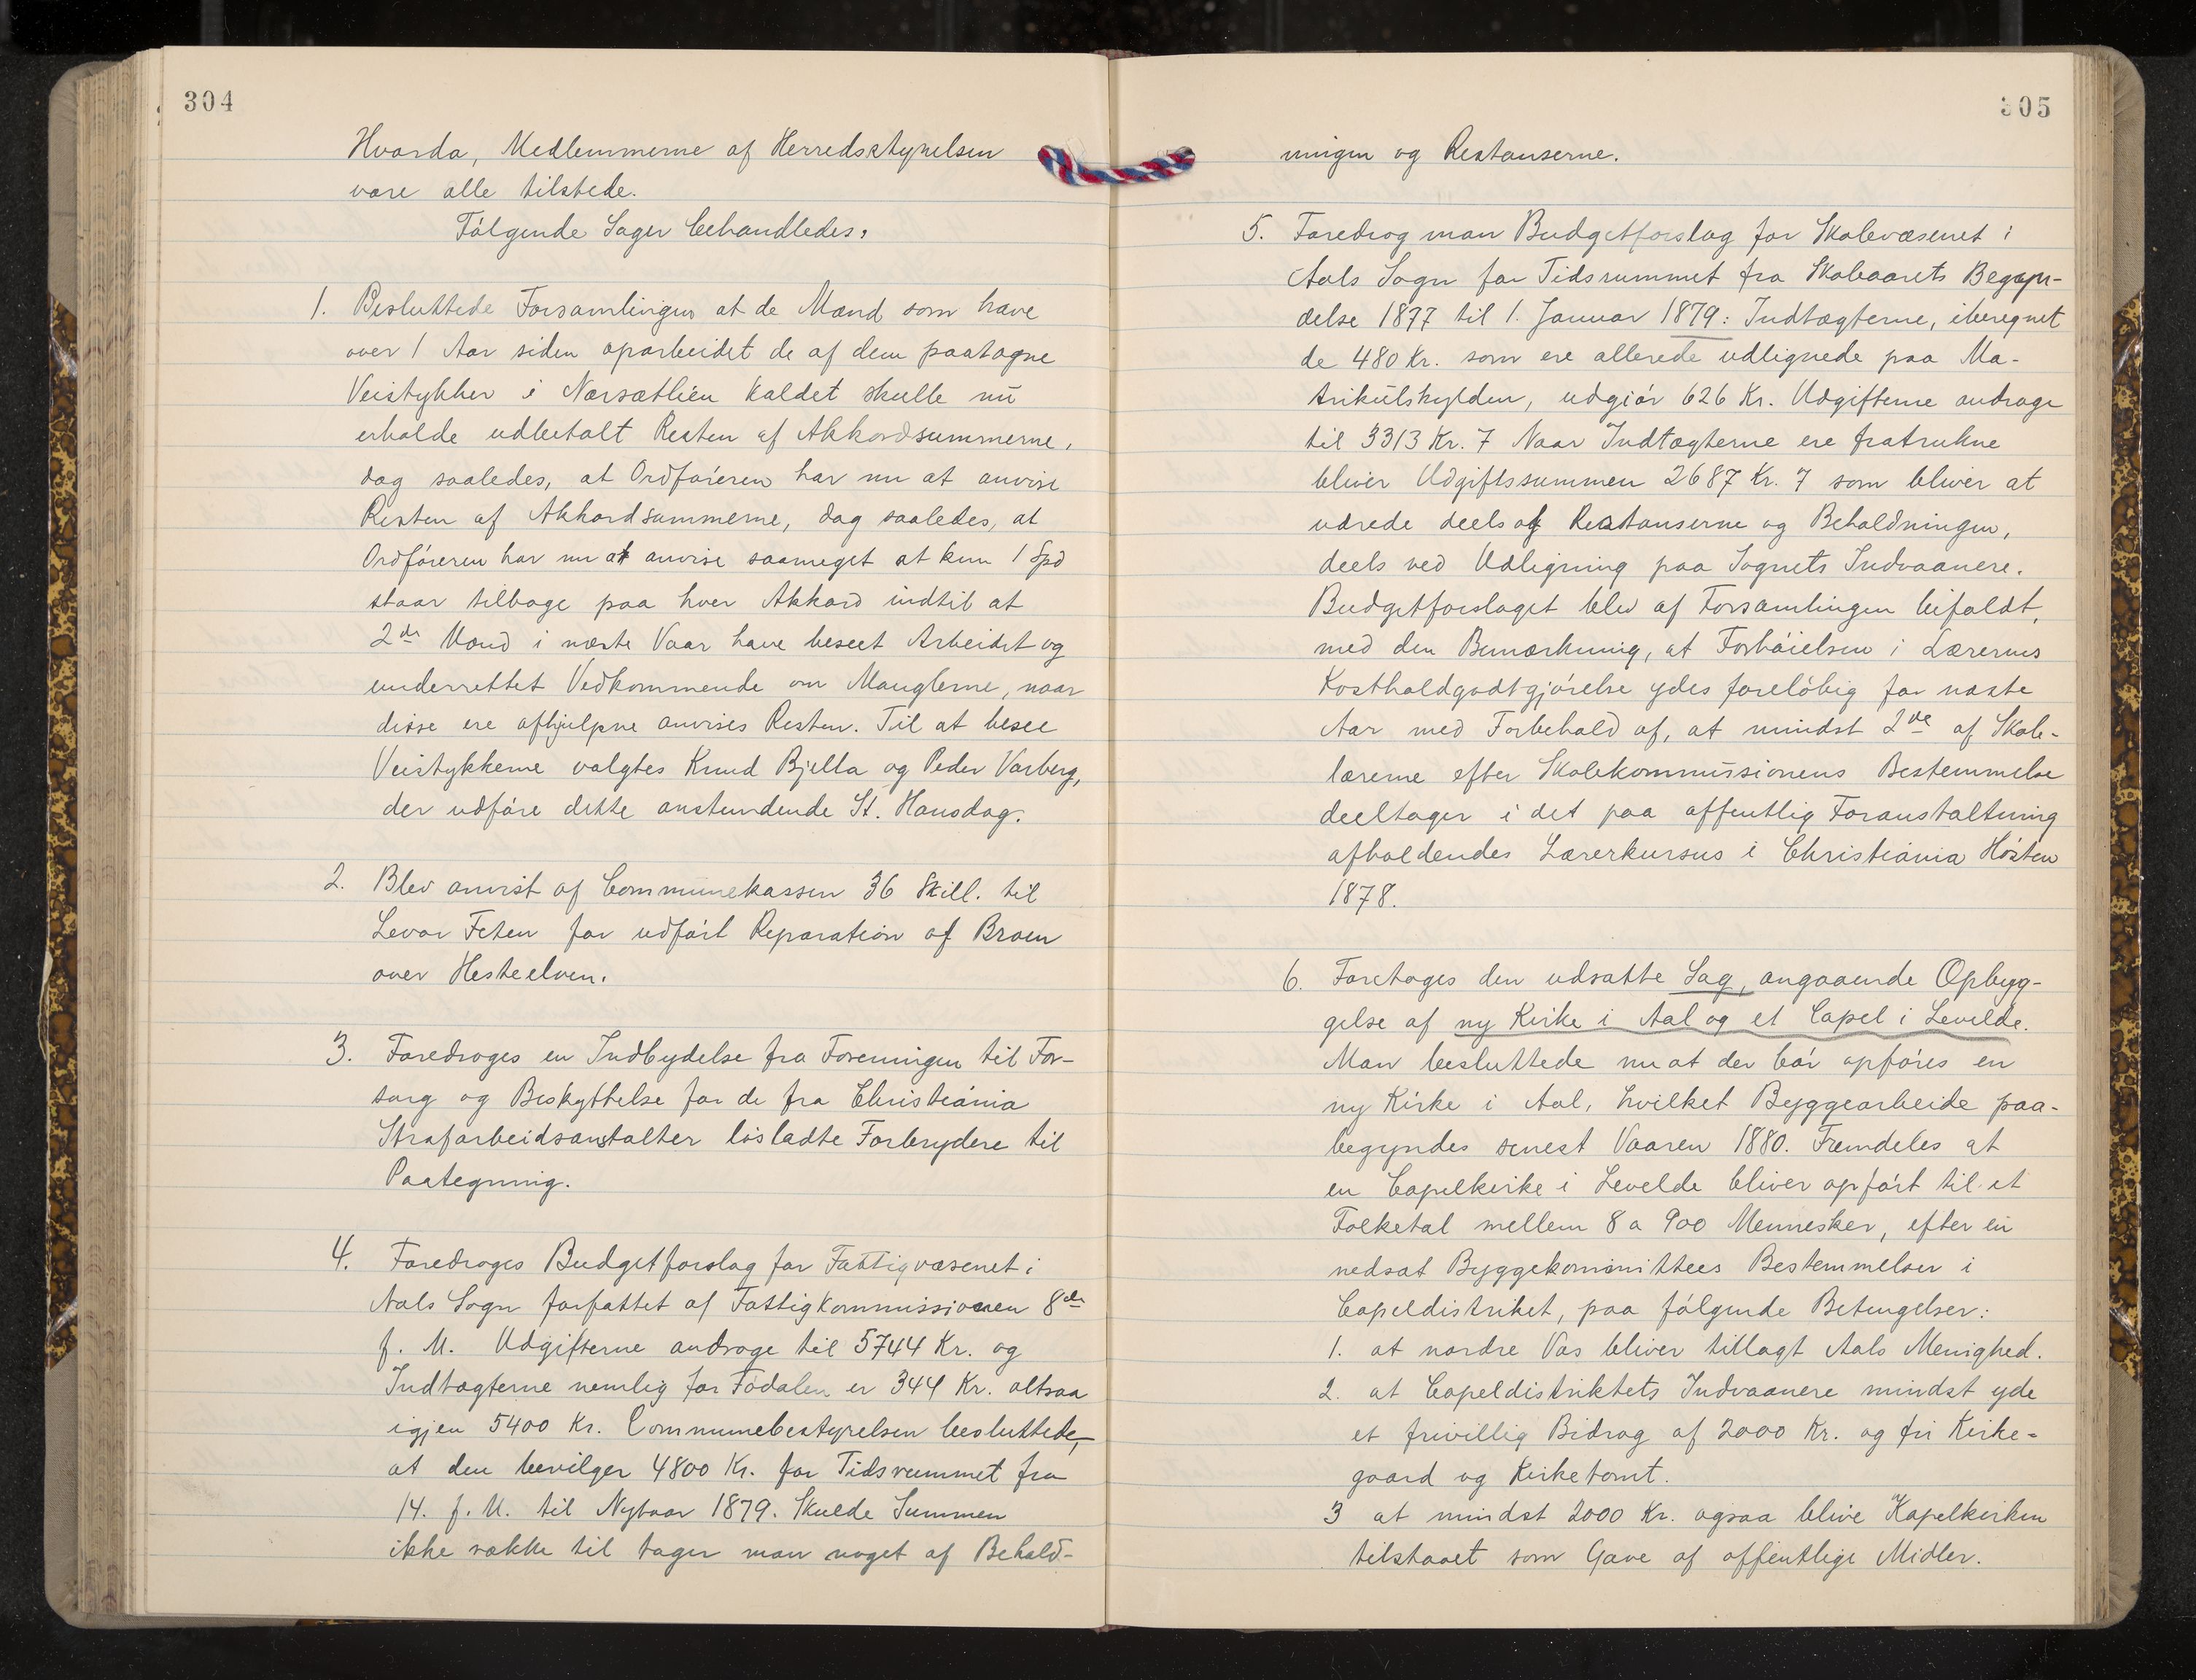 304
Hvorda, Medlemmerne af Herredsstyrelsen
vare alle tilstede.
Følgende Sager behandledes,
1. Besluttede Forsamlingen at de Mænd som have
over 1 Aar siden oparbeidet de af dem paatagne
Veistykker i Nærsætlien kaldet skulle nu
erholde udbetalt Resten af Akkordsummerne,
dog saaledes, at Ordføreren har nu at anvise
Resten af Akkordsummerne, dog saaledes, at
Ordføreren har nu at anvise saameget at kun 1 Spd
staar tilbage paa hver Akkord indtil at
2de Mænd i næste Vaar have beseet Arbeidet og
underrettet Vedkommende om Manglerne, naar
disse ere afhjulpne anvises Resten. Til at besee
Veistykkerne valgtes Knud Bjella og Peder Varberg,
der udføre dette anstundende St. Hansdag.
2. Blev anvist af Communekassen 36 Skill. til
Levor Feten for udført Reparation af Broen
over Hesteelven.
3. Foredroges en Indbydelse fra Foreningen til For-
sorg og Beskyttelse for de fra Christiania
Strafarbeidsanstalter løsladte Forbrydere til
Paategning.
4. Foredroges Budgetforslag for Fattigvæsenet i
Aals Sogn forfattet af Fattigkommissionen 8de
f. M. Udgifterne androge til 5744 Kr. og
Indtægterne nemlig for Fødalen er 344 Kr. altsaa
igjen 5400 Kr. Communebestyrelsen besluttede,
at den bevilger 4800 Kr. for Tidsrummet fra
14. f. M. til Nytaar 1879. Skulde Summen
ikke række til tager man noget af Behold-
305
ningen og Restanserne.
5. Foredrog man Budgetforslag for Skolevæsenet i
Aals Sogn for Tidsrummet fra Skoleaarets Begyn-
delse 1877 til 1. Januar 1879: Indtægterne, iberegnet
de 480 Kr. som ere allerede udlignede paa Ma-
trikulskylden, udgiør 626 Kr. Udgifterne androge
til 3313 Kr. 7 Naar Indtægterne ere fratrukne
bliver Udgiftssummen 2687 Kr. 7 som bliver at
udrede deels af Restanserne og Beholdningen,
deels ved Udligning paa Sognets Indvaanere.
Budgetforslaget blev af Forsamlingen bifaldt,
med den Bemærkning, at Forhøielsen i Lærernes
Kostholdgodtgjørelse ydes foreløbig for næste
Aar med Forbehold af, at mindst 2de af Skole-
lærerne efter Skolekommissionens Bestemmelse
deeltager i det paa offentlig Foranstaltning
afholdendes Lærerkursus i Christiania Høsten
1878.
6. Foretoges den udsatte Sag, angaaende Opbyg-
gelse af ny Kirke i Aal og et Capel i Levelde.
Man besluttede nu at der bør opføres en
ny Kirke i Aal, hvilket Byggearbeide paa-
begyndes senest Vaaren 1880. Fremdeles at
en Capelkirke i Levelde bliver opført til et
Folketal mellem 8 a 900 Mennesker, efter en
nedsat Byggekommittees Bestemmelser i
Capeldistriket, paa følgende Betingelser:
1. at nordre Vas bliver tillagt Aals Menighed.
2. at Capeldistriktets Indvaanere mindst yde
et frivillig Bidrag af 2000 Kr. og fri Kirke-
gaard og Kirketomt.
3 at mindst 2000 Kr. ogsaa blive Kapelkirken
tilstaaet som Gave af offentlige Midler.